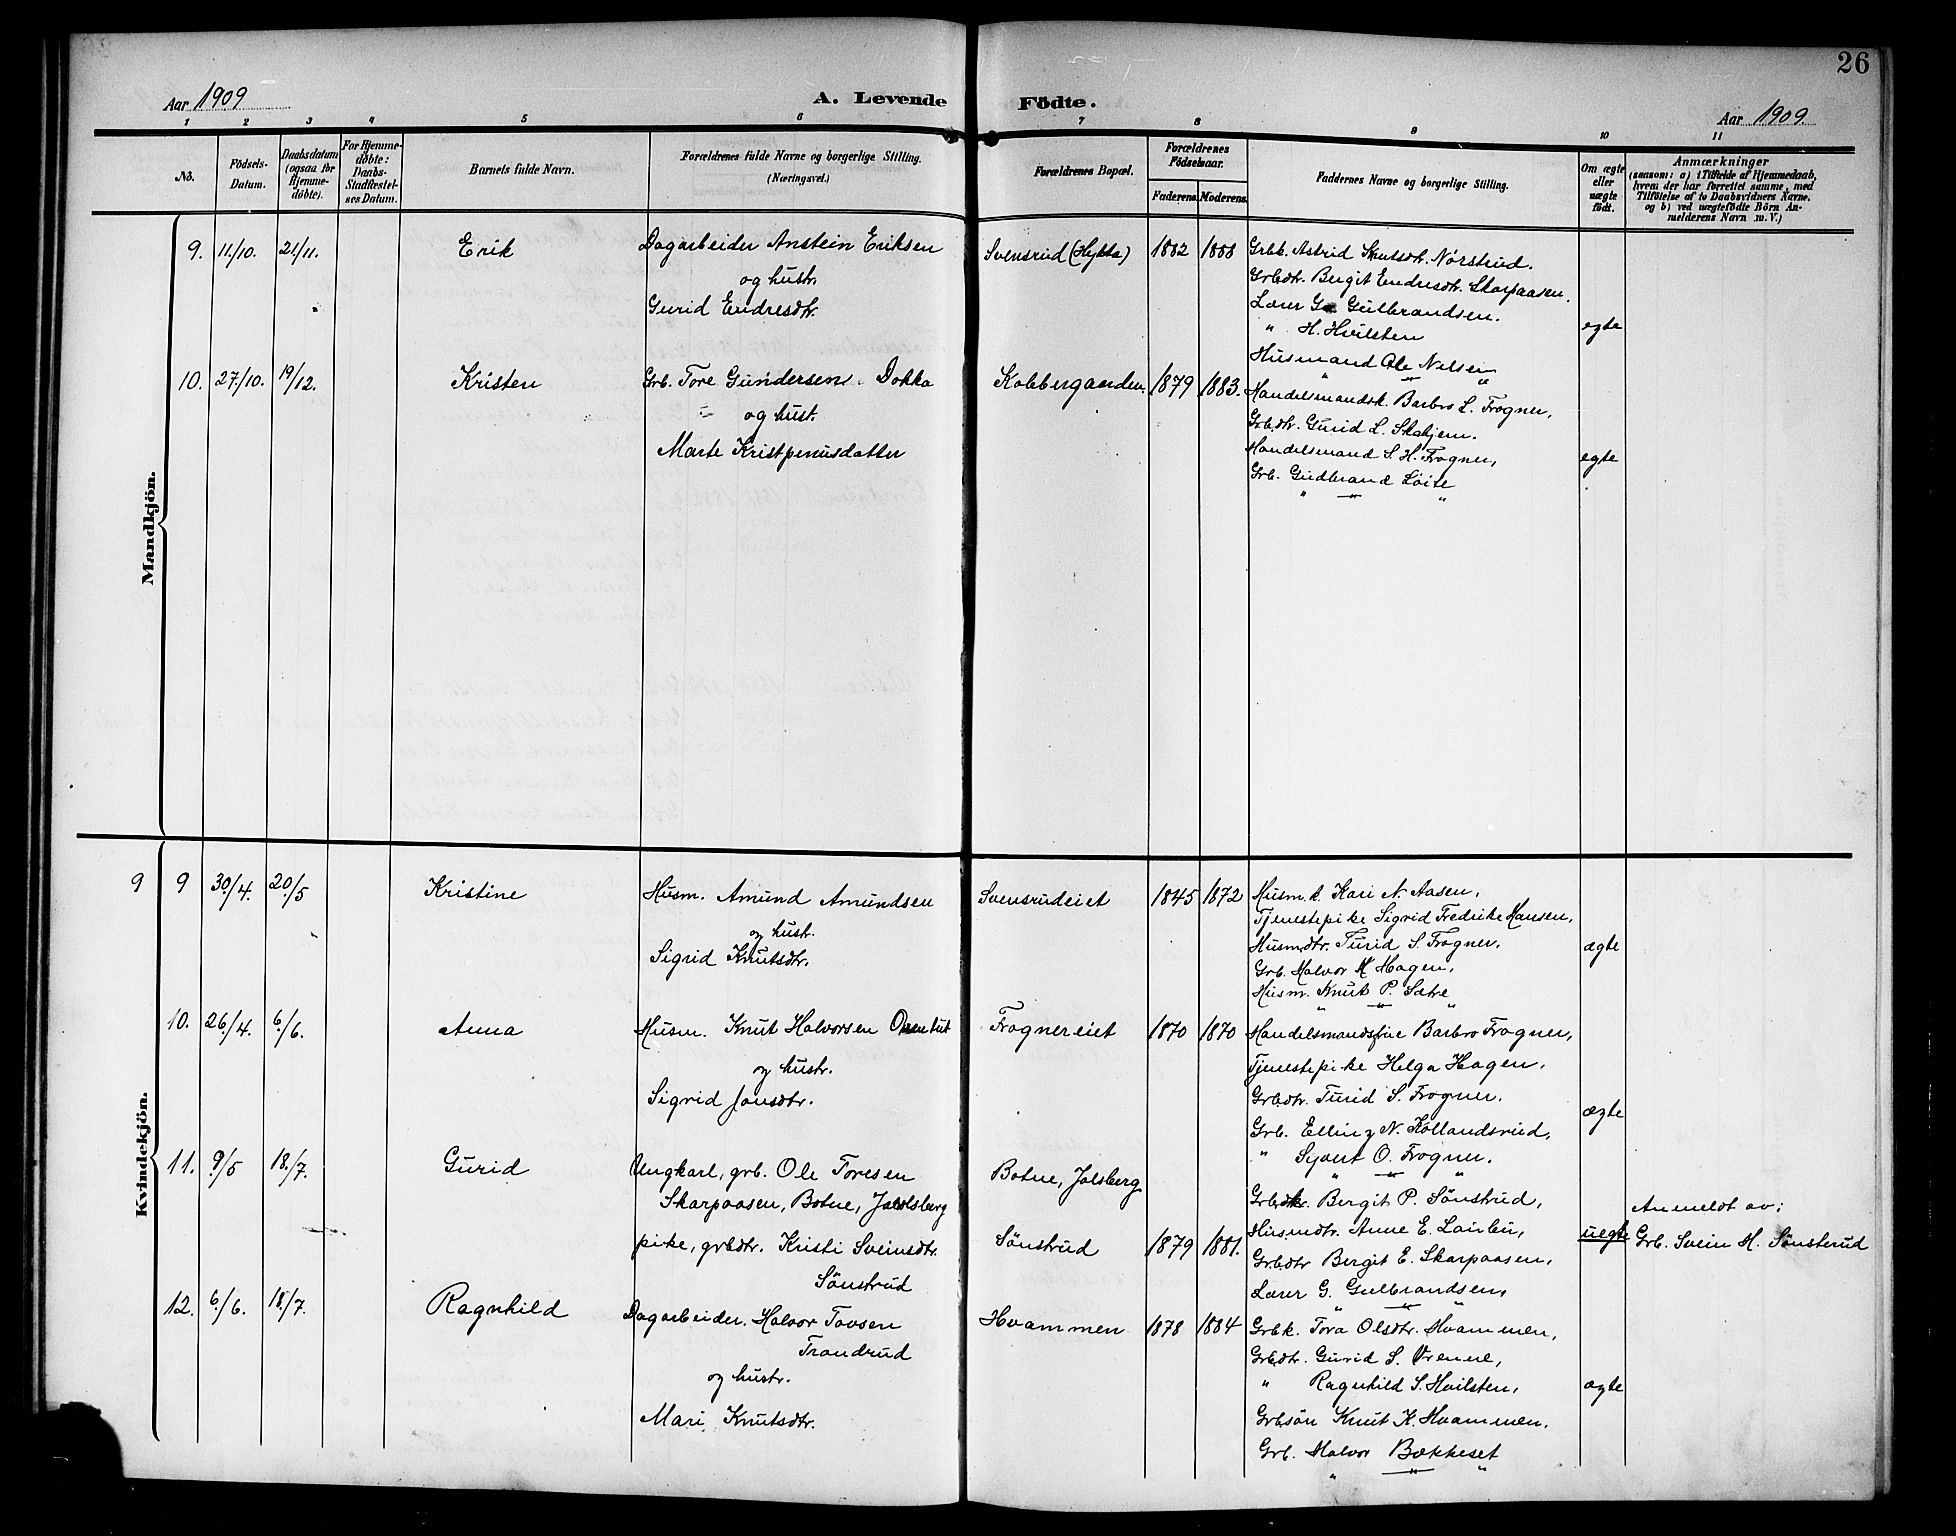 26
Aar 1909
A. Levende Födte.
Aar 1909.
1 2 3 4 5 6 7 8 9 10 11
No.
Födsels-Datum.
Daabsdatum (ogsaa for Hjemme-döbte).
For Hjemme-döbte: Daabs-Stadfæstel-ses Datum.
Barnets fulde Navn.
Forældrenes fulde Navne og borgerlige Stilling.
(Næringsvei.)
Forældrenes Bopæl.
Forældrenes Födselsaar.
Faderens Moderens
Faddernes Navne og borgerlige Stilling.
Om ægte eller uægte födt.
Anmærkninger
(saasom: a) i Tilfælde af Hjemmedaab,
hvem der har forrettet samme, med
Tilföielse af to Daabsvidners Navne,
og b) ved uægtefödte Börn An-
melderens Navn m. V.)
Mandkjön.
9. 11/10. 21/11. Erik
Dagarbeider Anstein Eriksen
og hustr.
Gurid Endresdtr.
Svensrud (Hytta) 1882 1888
Grbk. Astrid Knutsdtr. Nörstrud.
Grbdtr. Bergit Endresdtr. Skarpaasen.
Lærer G. Gulbrandsen.
" H. Hvilsten
Husmand Ole Nilsen
" " "
egte
10. 27/10. 19/12. Kristen
Grb. Tore Gundersen Dokka
og hust.
Marte Kristpenusdatter
Kobbergaarden. 1879 1883.
Handelsmandsk. Barbro L. Frogner,
Grbdtr. Gurid L. Skatjem.
Handelsmand S. H. Frogner,
Grb. Gudbrand Löite
" " "
egte
Kvindekjön.
9 9 30/4. 20/5 Kristine
Husm. Amund Amundsen
og hustr.
Sigrid Knutsdtr.
Svensrudeiet 1845 1872
Husm.k. Kari N. Aasen,
Tjenestepike Sigrid Fredrike Hansen,
Husmdtr. Turid S. Frogner.
Grb. Halvor H. Hagen,
Husm. Knut P. Sætre
" " "
ægte
10. 26/4. 6/6. Anna
Husm. Knut Halvorsen
og hustr.
Sigrid Jonsdtr.
Frognereiet 1870 1870
Handelsmandsfrue Barbro Frogner,
Tjenestepike Helga Hagen,
Grbdtr. Turid S. Frogner.
Grb. Elling N. Kollandsrud,
" Syvert O. Frogner.
" " "
ægte
11. 9/5 18./7. Gurid
Ungkarl, grb. Ole Toresen
Skarpaasen, Botne, Jolsberg
pike, grbdtr. Kristi Sveinsdtr.
Sönstrud
Botne, Jolsberg
Sönstrud 1879 1881.
Grbdtr. Bergit P. Sönstrud,
Husmdtr. Anne E. Lairbu,
Grbdtr Bergit E. Skarpaasen,
Lærer G. Gulbrandsen,
" " "
uegte
Anmeldt av:
Grb. Svein H. Sönsterud
12. 6/6. 18./7. Ragnhild
Dagarbeider. Halvor Tovsen
Trandrud
og hustr.
Mari Knutsdtr.
Hvammen 1878 1884
Grbk. Tora Olsdtr. Hvammen,
Grbdtr. Gurid S. Vrenne,
" Ragnhild S. Hvilsten,
Grbsön Knut K. Hvammen.
Grb. Halvor Bækkeset
" " "
ægte